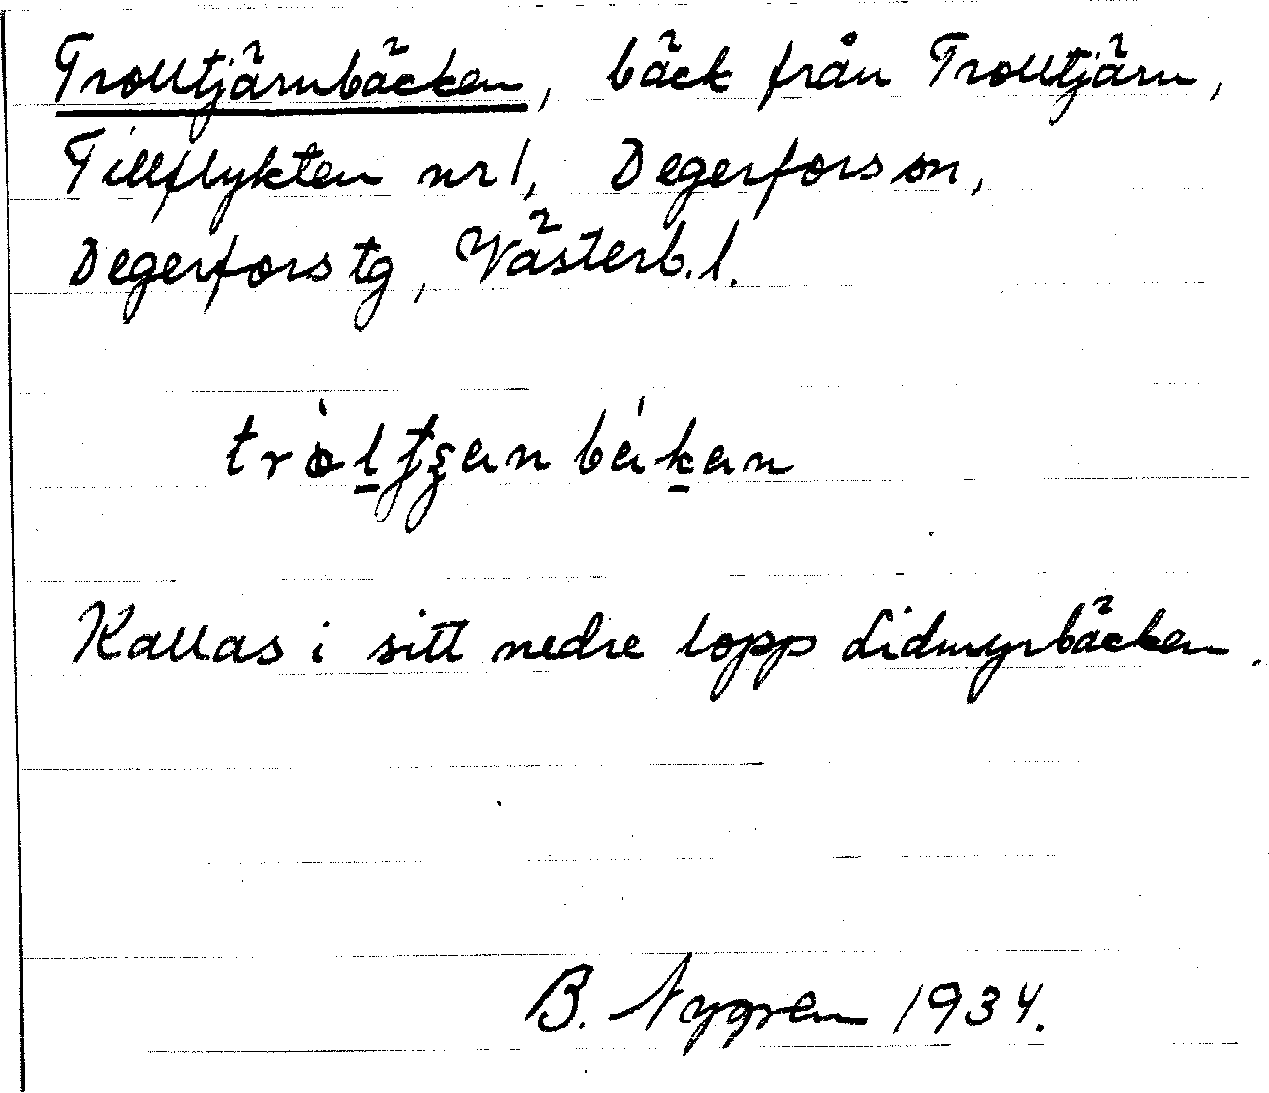 Trolltjärnbäcken, bäck från Trolltjärn,
Tillflykten nr 1, Degerfors sn,
Degerfors tg, Västerb. l.
Kallas i sitt nedre lopp Lidmyrbäcken.
B. Nygren 1934.